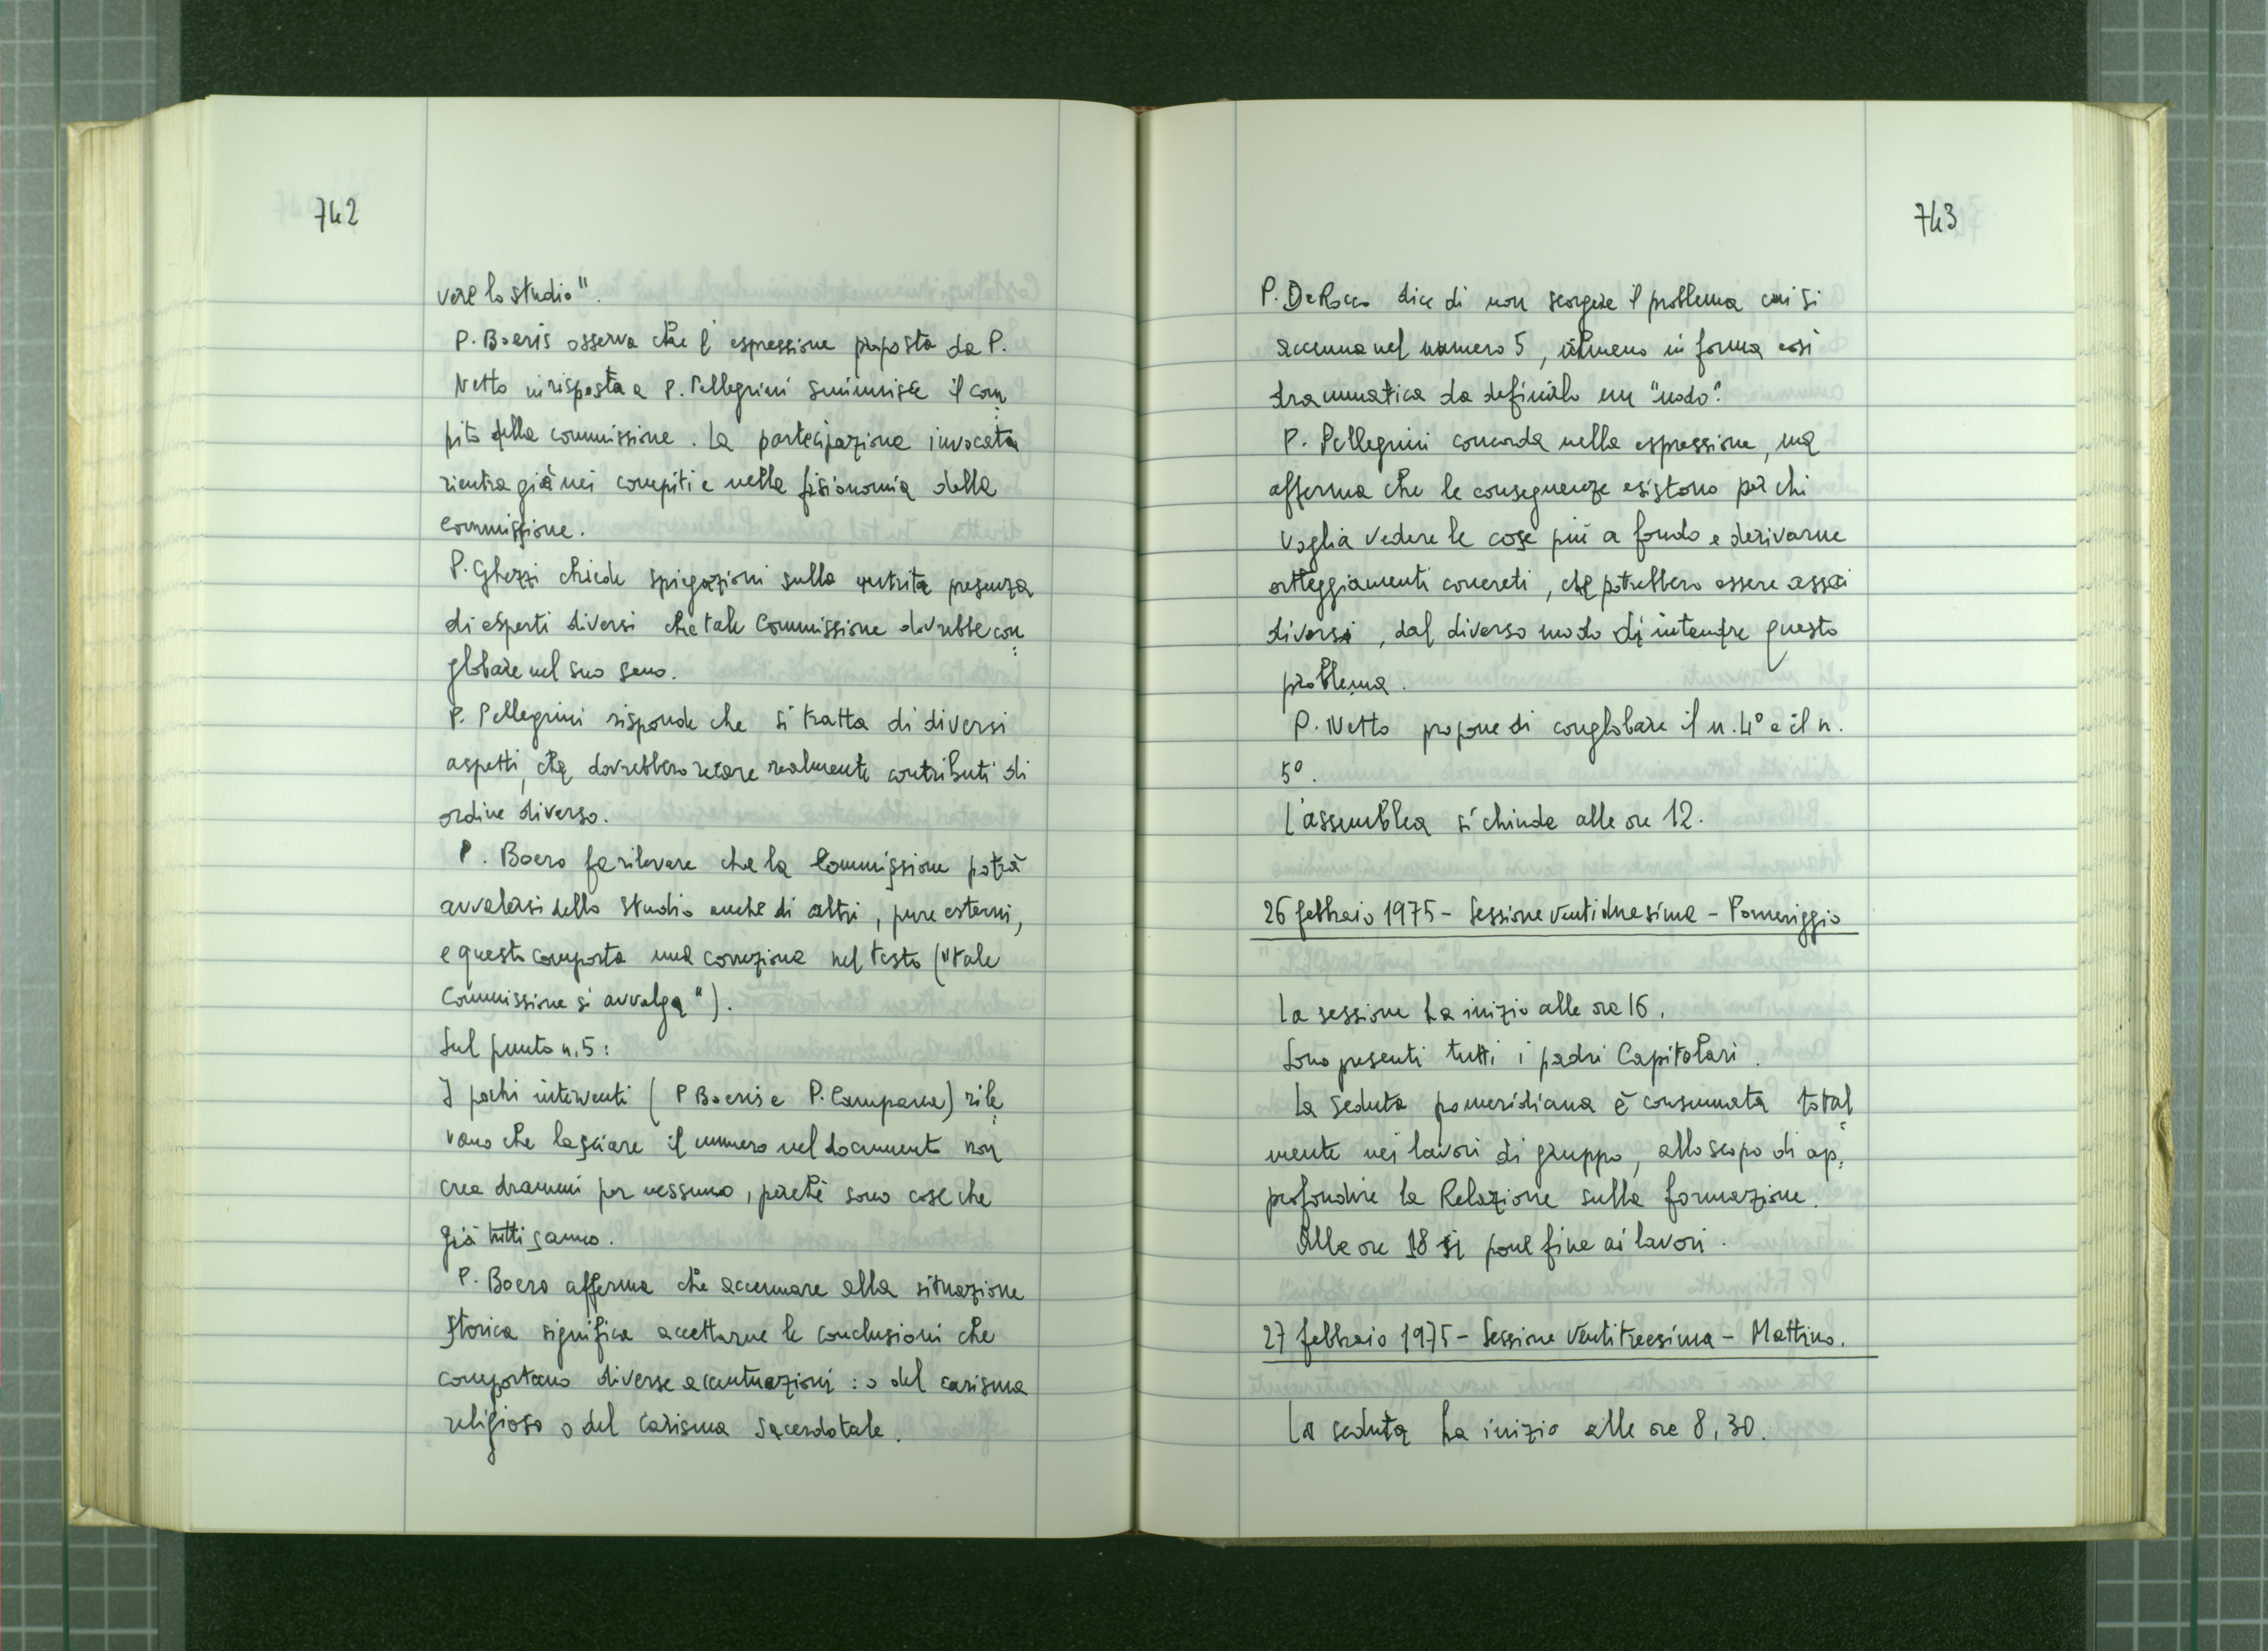 742
vere lo studio".
P. Boeris osserva che l'espressione proposta da P.
Netto in risposta a P. Pellegrini sminuisce il com
pito della commissione. La partecipazione invocata
rientra già nei compiti e nella fisionomia della
commissione.
P. Ghezzi chiede spiegazioni sulla nutrita presenza
di esperti diversi che tale Commissione dovrebbe con=
globare nel suo seno.
P. Pellegrini risponde che si tratta di diversi
aspetti, che dovrebbero recare realmente contributi di
ordine diverso.
P. Boero fa rilevare che la Commissione potrà
avvalersi dello studio anche di altri, pure esterni,
e questo comporta una correzione nel testo ("tale
Commissione si avvalga").
Sul punto n. 5:
I pochi interventi (P Boeris e P. Campana) rile=
vano che lasciare il numero nel documento non
crea drammi per nessuno, perchè sono cose che
già tutti sanno.
P. Boero afferma che accennare alla situazione
storica significa accettarne le conclusioni che
comportano diverse accentuazioni: o del carisma
religioso o del carisma sacerdotale.
743
P. De Rocco dice di non scorgere il problema cui si
accenna nel numero 5, almeno in forma così
drammatica da definirlo un "nodo".
P. Pellegrini concorda nella espressione, ma
afferma che le conseguenze esistono per chi
voglia vedere le cose più a fondo e derivarne
atteggiamenti concreti, che potrebbero essere assai
diversi, dal diverso modo di intendere questo
problema.
P. Netto propone di conglobare il n. 4° e il n.
5°.
L'assemblea si chiude alle ore 12.
26 febbraio 1975 - Sessione ventiduesima - Pomeriggio
La sessione ha inizio alle ore 16.
Sono presenti tutti i padri Capitolari.
La seduta pomeridiana è consumata total=
mente nei lavori di gruppo, allo scopo di ap=
profondire la Relazione sulla formazione.
Alle ore 18 si pone fine ai lavori.
27 febbraio 1975 - Sessione Ventitreesima - Mattino.
La seduta ha inizio alle ore 8,30.